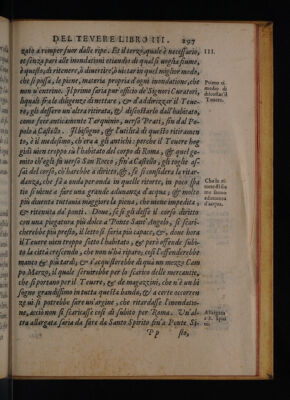 DEL TEVERE LIBRO III. 297
zato à romper fuor dalle ripe. Et il terzo, quale è necessario,
et senza pari alle inondationi etiandio di qual si voglia fiume,
è questo, di ritenere, ò divertire, ò vietar in quel miglior modo,
che si possa, le piene, materia propria d'ogni inondatione, che
non u'entrino. Il primo saria per officio de' Signori Curatori,
liquali fra le diligenze di nettare, & d'addirizzar il Teue-
re, gli dessero un'altra ritirata, & discostarlo dall'habitato,
come fece anticamente Tarquinio, uerso Prati, fin'al Po-
polo à Castello. Il bisogno, & l'utilità di questo ritiramen
to, è il medesimo, ch'era gli antichi: perche il Teuere hog
gidì uien troppo sù l'habitato del corpo di Roma, & quel go-
mito ch'egli fà uerso San Rocco, fin'à Castello, gli toglie as-
sai del corso, ch'harebbe à diritto, & se si considera la ritar-
danza, che fà à onda per onda in quelle ritorte, in poco spa
tio si uiene à fare una grande adunanza d'acqua, & molto
più diuenta tuttauia maggiore la piena, che uiene impedita
& ritenuta da' ponti. Doue, se se gli desse il corso diritto
con una piegatura più dolce à Ponte Sant'Angelo, si scari-
cherebbe più presto, il letto si faria più capace, &, doue hora
il Teuere uien troppo sotto l'habitato, & però offende subi-
to la città crescendo, che non u'hà riparo; così l'offenderebbe
manco & più tardi, & s'acquisterebbe di quà un mezzo Cam
po Marzo, il quale seruirebbe per lo scarico delle mercantie,
che si portano per il Teuere, & de magazzini, che n'è un bi
sogno grandissimo in tutta questa banda, & à certe occorren
ze ui si potrebbe fare un'argine, che ritardasse l'inondatio-
ne, acciò non si scaricasse così di subito per Roma. Un'al-
tra allargata saria da fare da Santo Spirito fin'à Ponte Si-
Pp sto,
III.
Primo ri-
medio di
discostar il
Teuere.
Che le ri-
torte
fanno
adunanza
d'acqua.
Allargata
à S. Spiri
to.